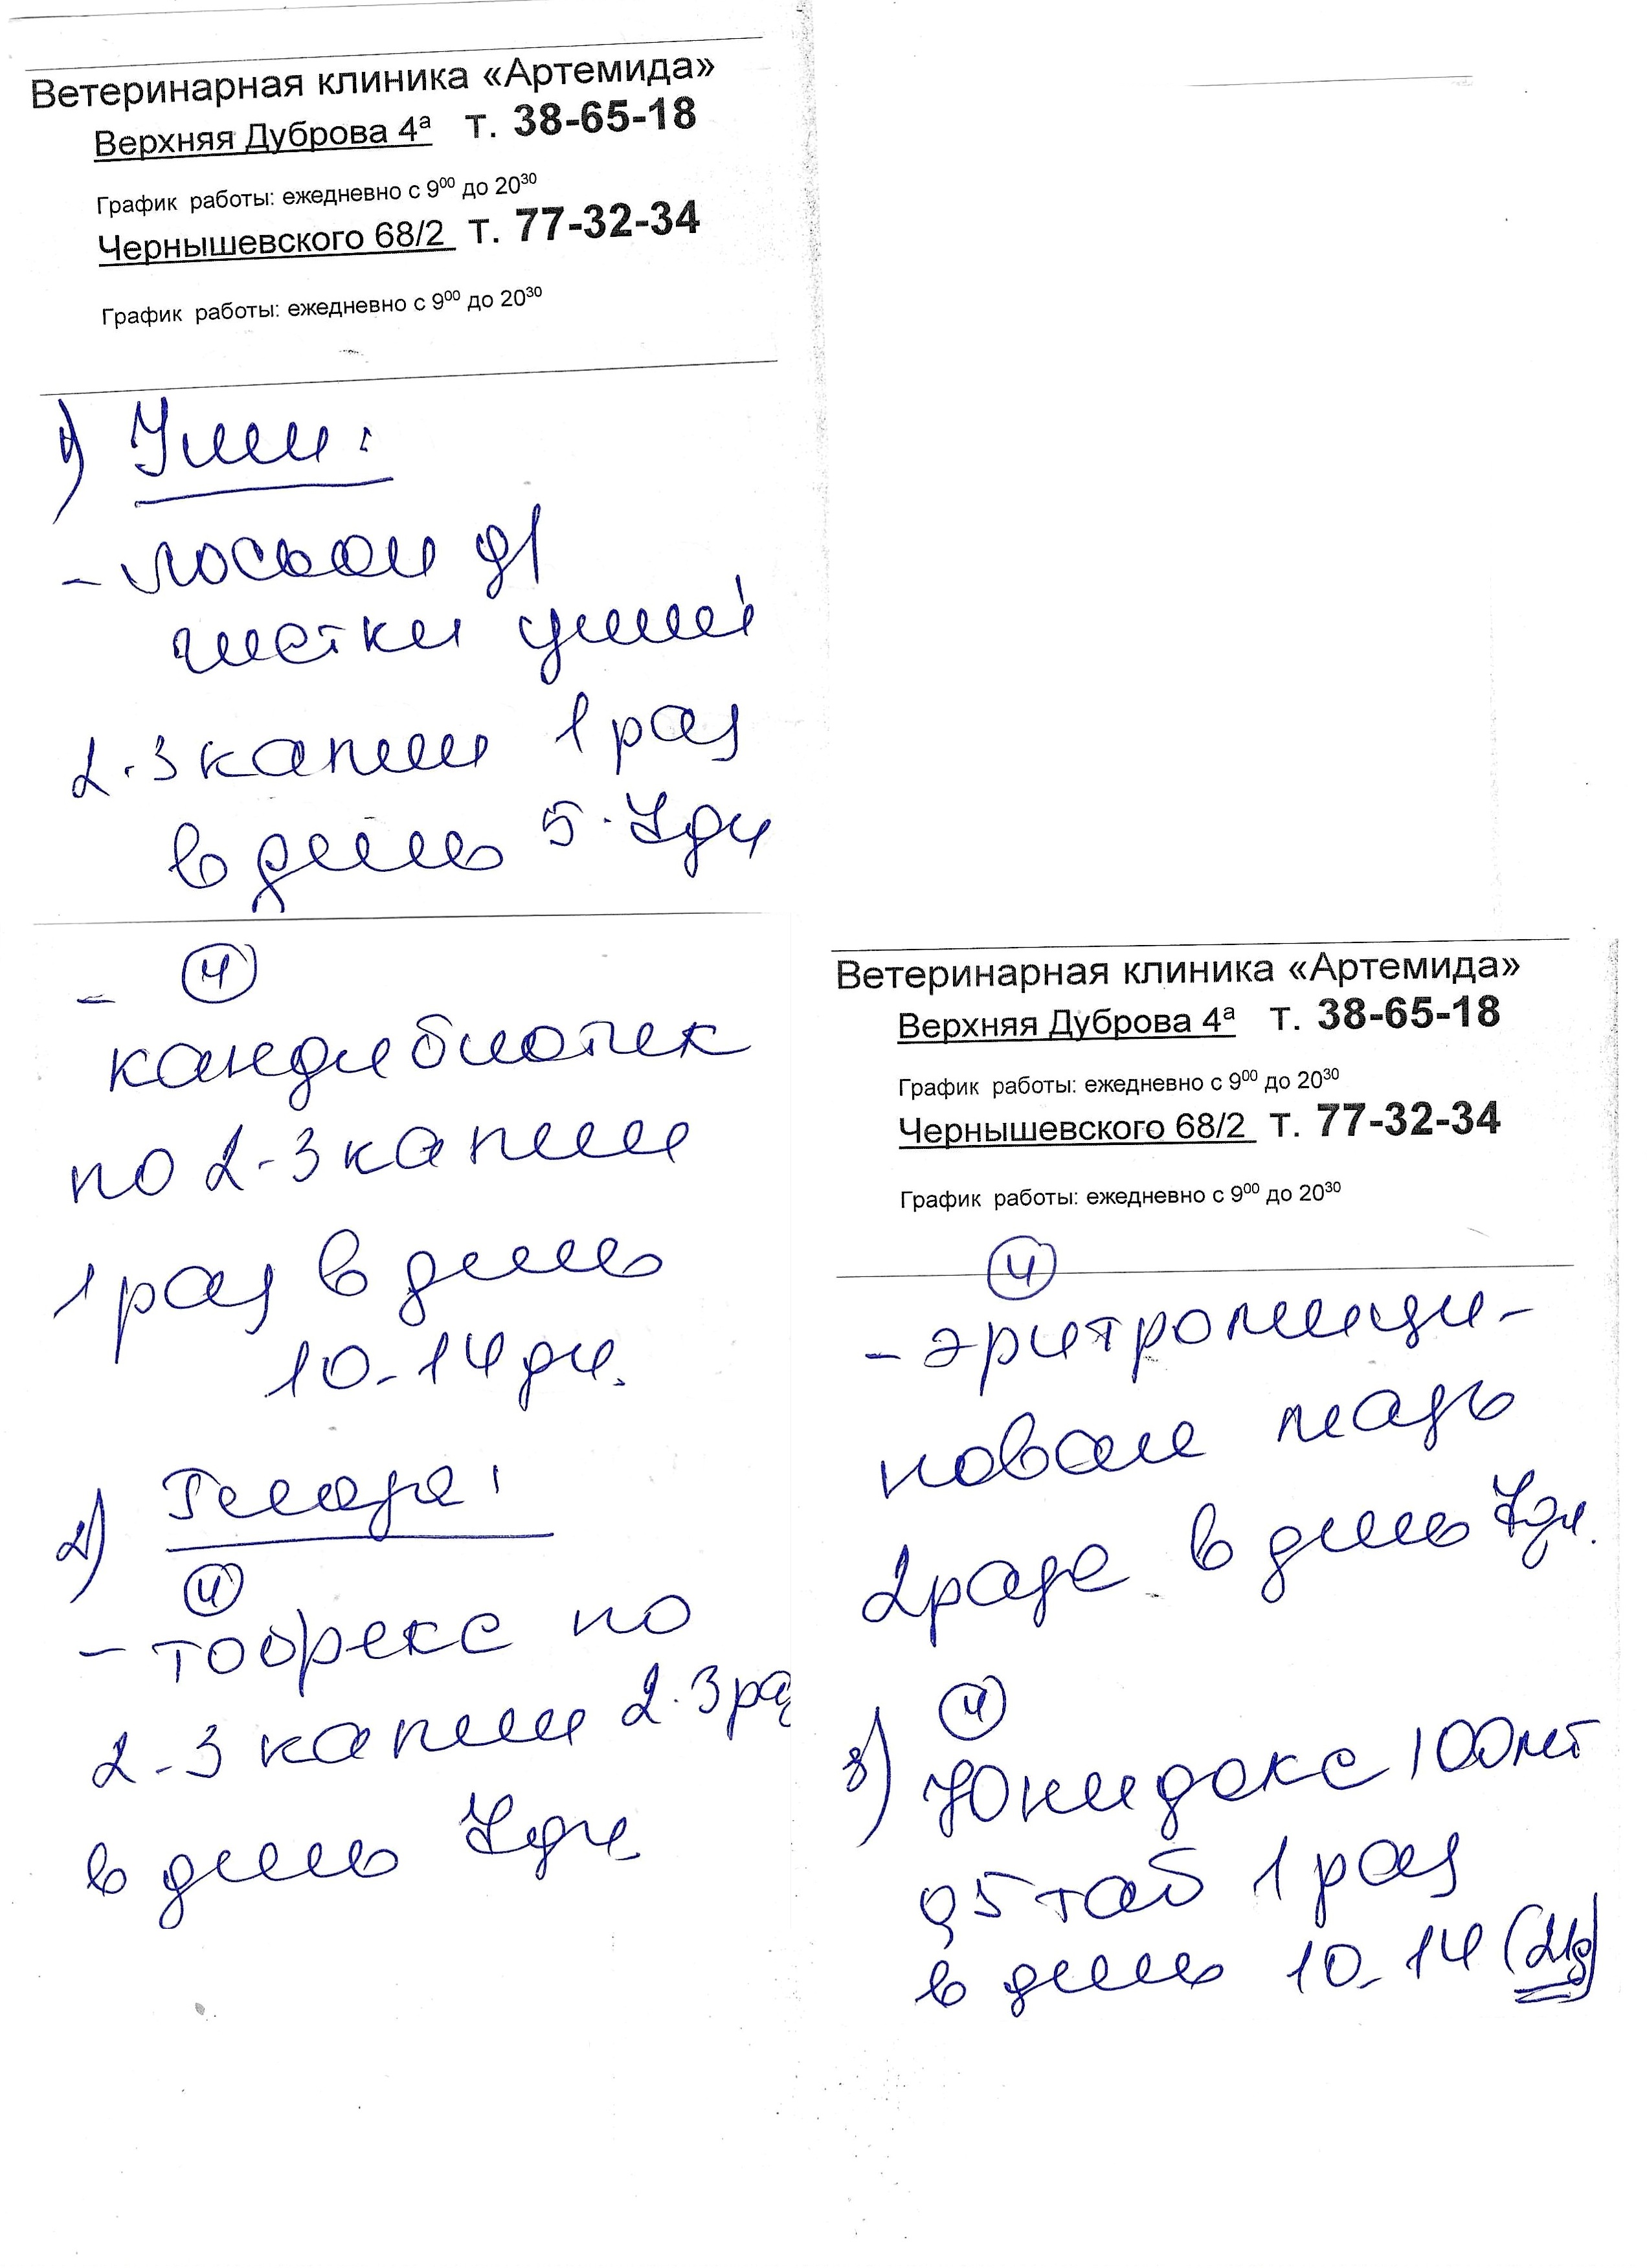 Ветеринарная клиника «Артемида»
Верхняя Дуброва 4ª т. 38-65-18
График работы: ежедневно с 9⁰⁰ до 20³⁰
Чернышевского 68/2 т. 77-32-34
График работы: ежедневно с 9⁰⁰ до 20³⁰
1) Уши:
- лосьон д/
чистки ушей
2-3 капли 1 раз
в день 5-7 дн
- ч
кандибиотик
по 2-3 капли
1 раз в день
10-14 дн.
2) Глаза:
ч
- тобрекс по
2-3 капли 2-3 раз
в день 7 дн.
Ветеринарная клиника «Артемида»
Верхняя Дуброва 4ª т. 38-65-18
График работы: ежедневно с 9⁰⁰ до 20³⁰
Чернышевского 68/2 т. 77-32-34
График работы: ежедневно с 9⁰⁰ до 20³⁰
ч
- эритромици-
новая мазь
2 раза в день 7 дн.
ч
3) Юнидокс 100 мг
0,5 таб 1 раз
в день 10-14 (21д)